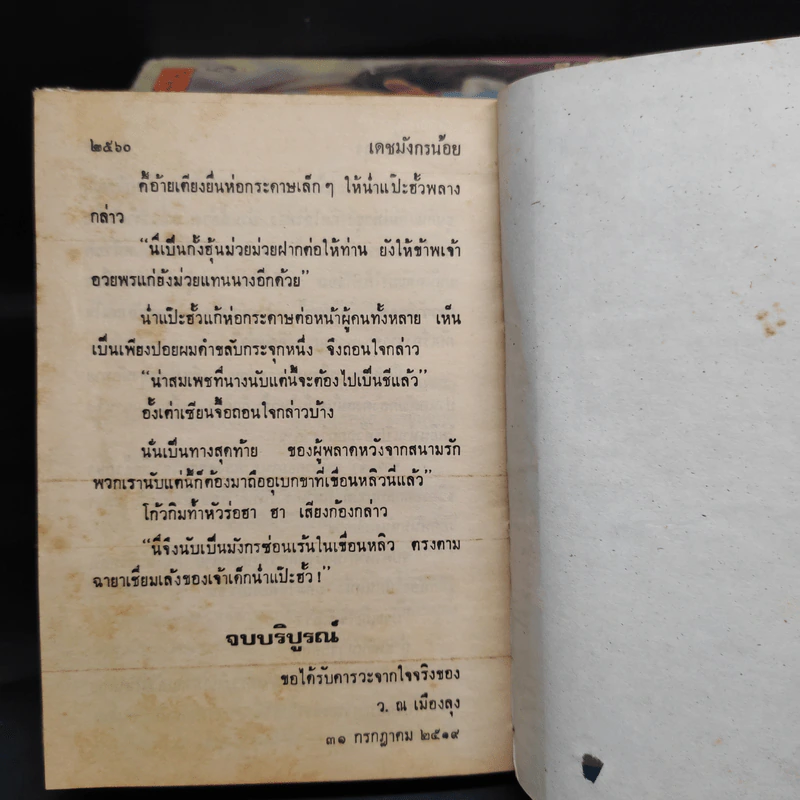 ๒๕๖๐ เดชมังกรน้อย
คี้อ้ายเตียงยื่นห่อกระดาษเล็กๆ ให้น่ำแป๊ะฮั้วพลาง
กล่าว
“นี่เป็นกั้งฮุ้นม่วยม่วยฝากต่อให้ท่าน ยังให้ข้าพเจ้า
อวยพรแก่ยังม่วยแทนนางอีกด้วย”
น่ำแป๊ะฮั้วแก้ห่อกระดาษต่อหน้าผู้คนทั้งหลาย เห็น
เป็นเพียงปอยผมดำขลับกระจุกหนึ่ง จึงถอนใจกล่าว
“น่าสมเพชที่นางนับแต่นี้จะต้องไปเป็นชีแล้ว”
อั้งเต่าเซียนจื้อถอนใจกล่าวบ้าง
นั่นเป็นทางสุดท้าย ของผู้พลาดหวังจากสนามรัก
พวกเรานับแต่นี้ก็ต้องมาถืออุเบกขาที่เขื่อนหลิวนี่แล้ว”
โก้วกิมท้ำหัวร่อฮา ฮา เสียงก้องกล่าว
“นี่จึงนับเป็นมังกรซ่อนเร้นในเขื่อนหลิว ตรงตาม
ฉายาเซี่ยมเล้งของเจ้าเด็กน่ำแป๊ะฮั้ว!”
จบบริบูรณ์
ขอได้รับคารวะจากใจจริงของ
ว. ณ เมืองลุง
๓๑ กรกฎาคม ๒๕๑๙